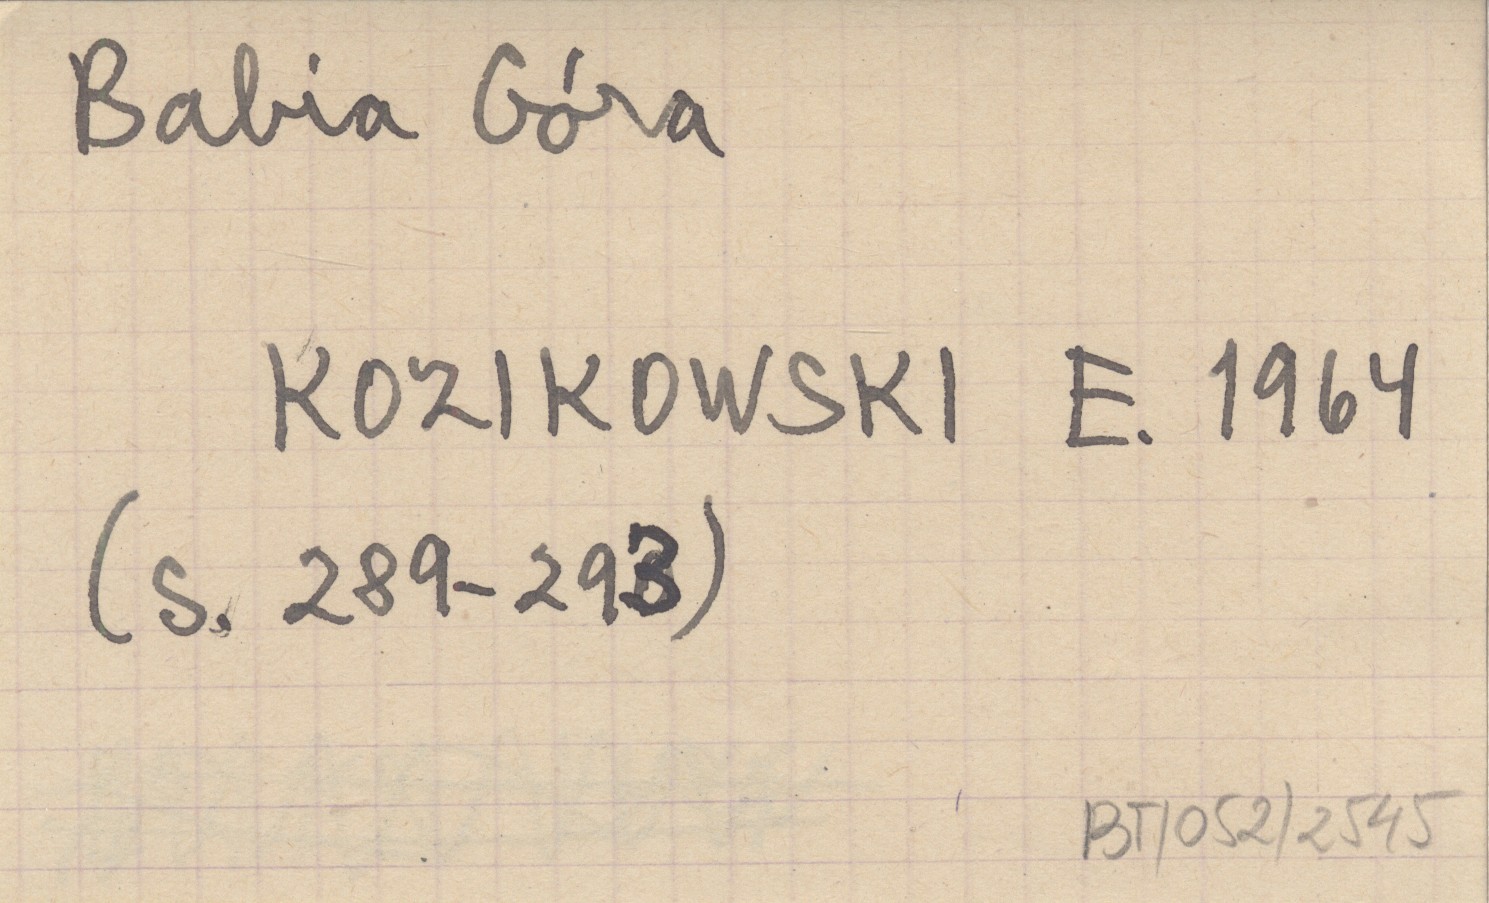 Babia Góra
KOZIKOWSKI E. 1964
(s. 289-293)
BT/052/2545